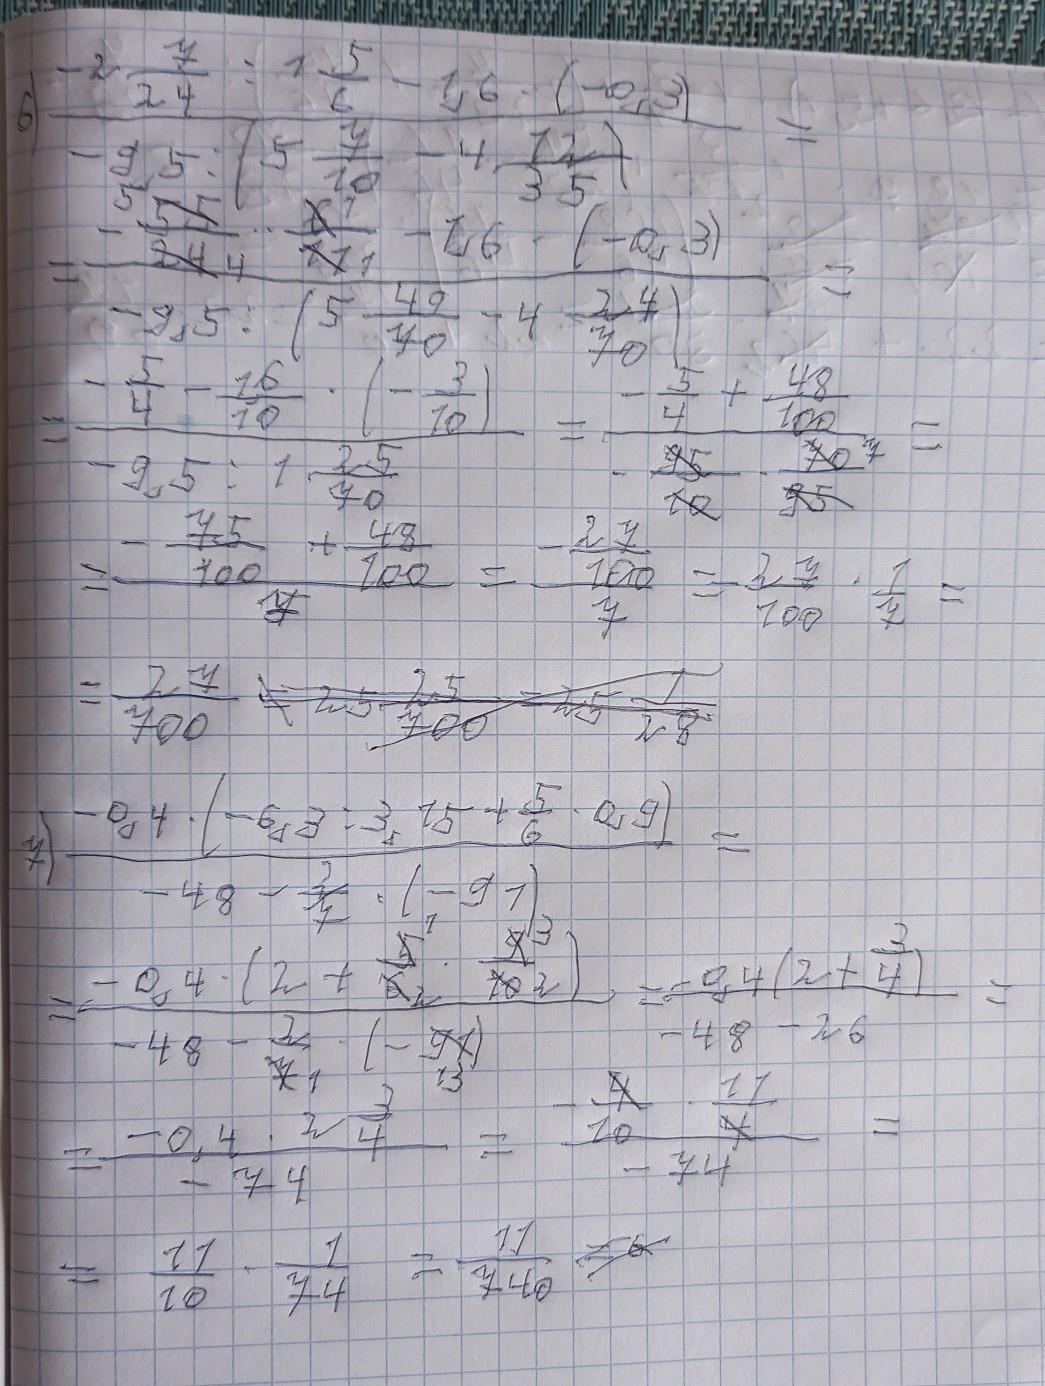 6) (-2 7/24 : 1 5/6 - 1,6 · (-0,3)) / (-9,5 : (5 7/10 - 4 12/35)) =
= (-55/24 · 6/11 - 1,6 · (-0,3)) / (-9,5 : (5 49/70 - 4 24/70)) =
= (-5/4 - 16/10 · (-3/10)) / (-9,5 : 1 25/70) = (-5/4 + 48/100) / (-95/10 · 70/95) =
= (-75/100 + 48/100) / 7 = (-27/100) / 7 = -27/100 · 1/7 =
= 27/700
7) (-0,4 · (-6,3 : 3,15 + 5/6 · 0,9)) / (-48 - 2/7 · (-91)) =
= (-0,4 · (2 + 5/6 · 9/10)) / (-48 - 2/7 · (-91)) = (-0,4 (2 + 3/4)) / (-48 - 26) =
= (-0,4 · 2 3/4) / (-74) = (-4/10 · 11/4) / (-74) =
= 11/10 · 1/74 = 11/740